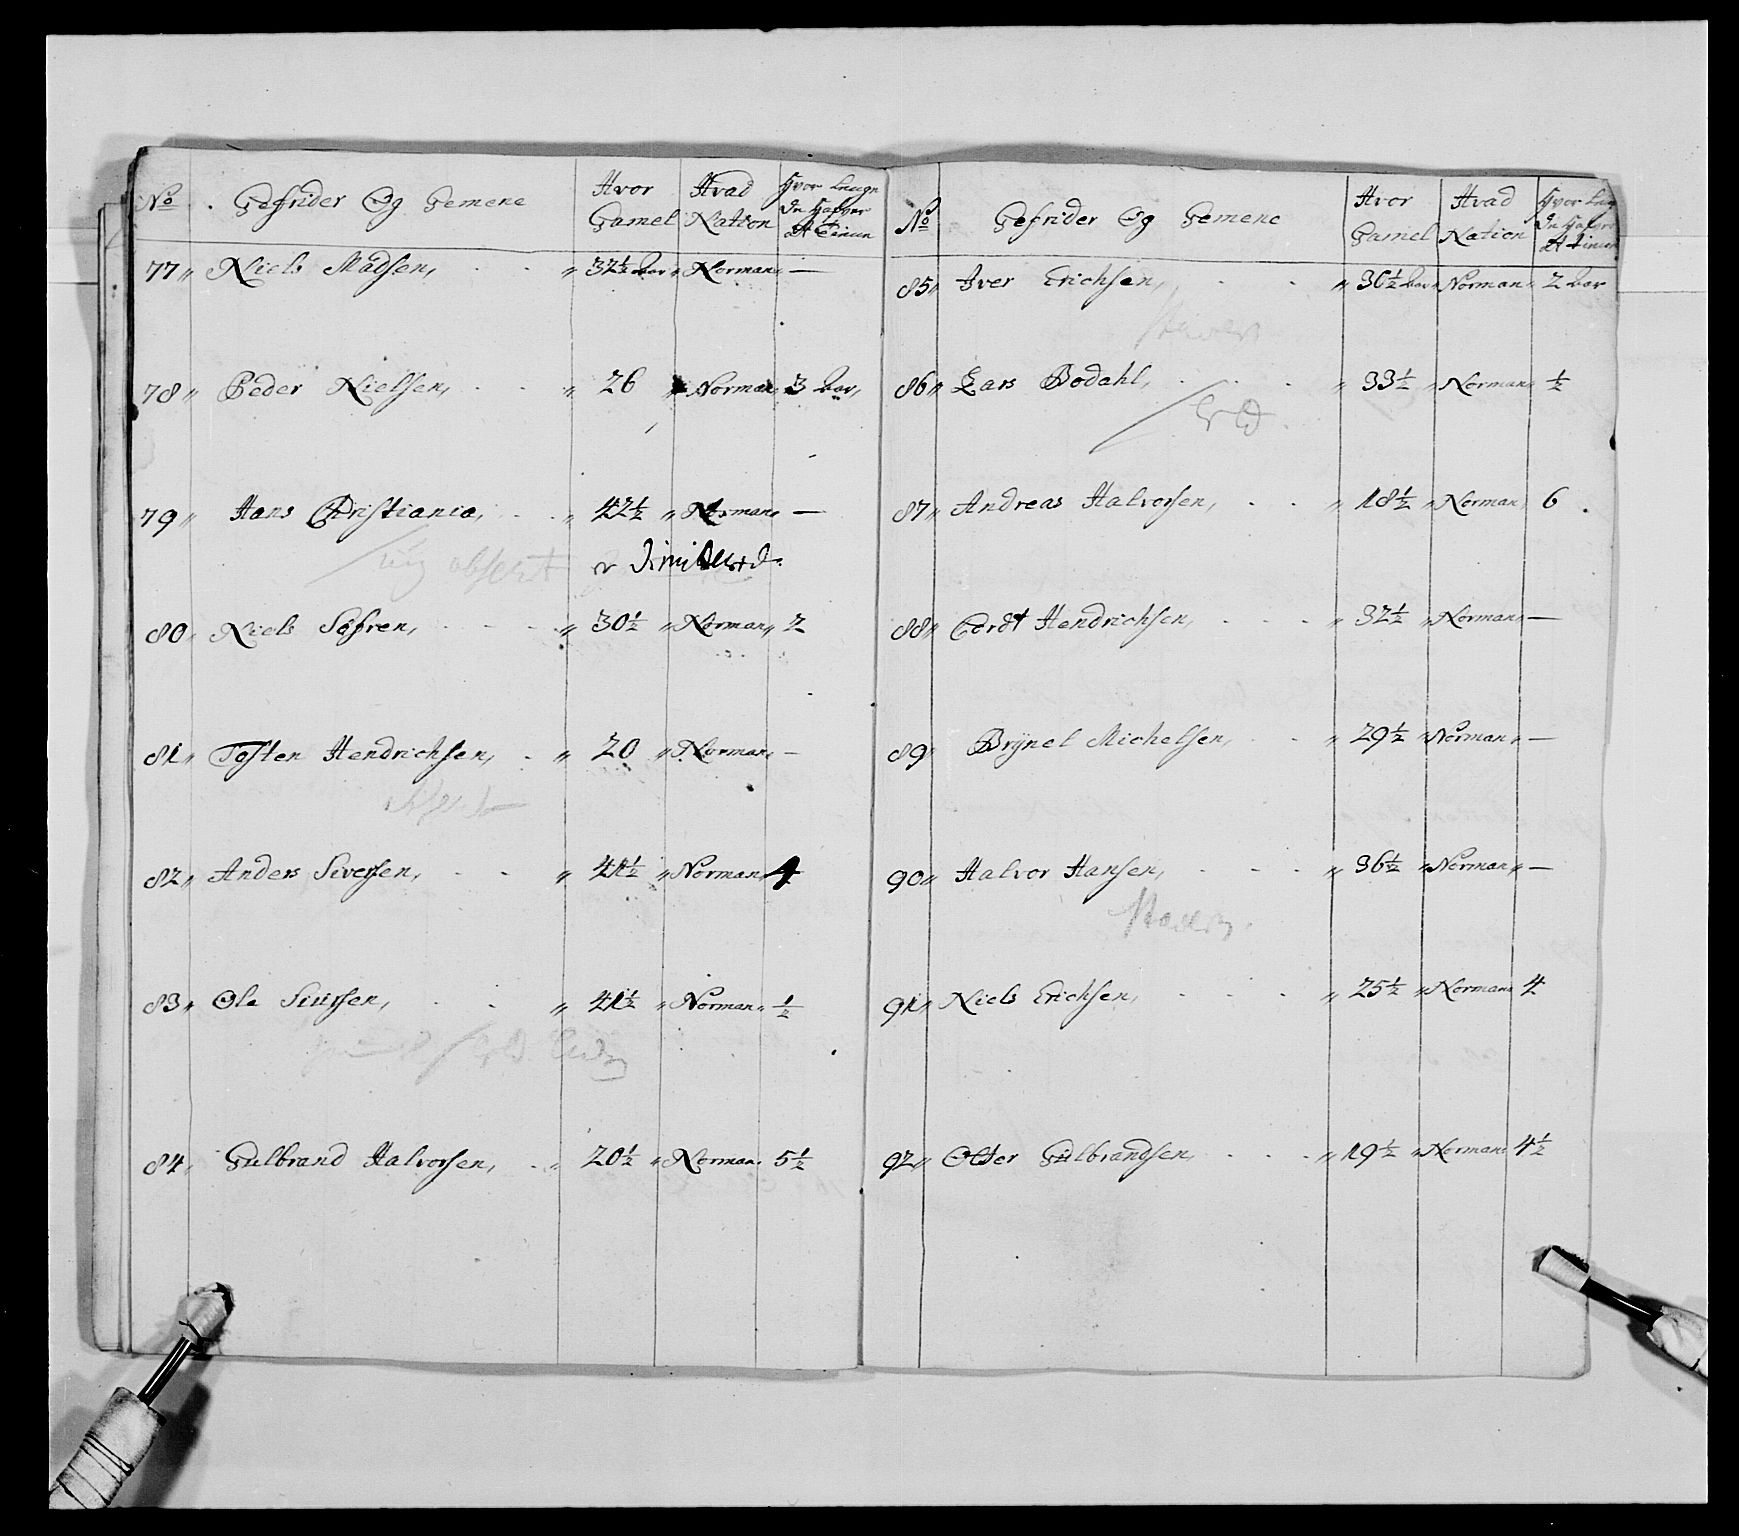 No. Gefrider Og Gemene Hvor Gamel Hvad Nation Hvor Lenge In Hafver At Tinnn
77 Niels Madsen, 32½ Aar Norman —
78 Peder Nielsen, 26 Norman 3 Aar,
79 Hans Christiania, 42½ Norman —
absent er Dimitterd.
80 Niels Sofren, 30½ Norman 2
81 Tosten Hendrichsen, 20 Norman —
82 Anders Siversen, 41½ Norman 4
83 Ole Siursen, 41½ Norman ½
84 Gulbrand Halvorsen, 20½ Norman 5½
No. Gefrider Og Gemene Hvor Gamel Hvad Nation
85 Iver Erichsen, 30½ Aar Norman 2 Aar
86 Lars Bodahl, 33½ Norman ½
87 Andreas Halvorsen, 18½ Norman 6
88 Cordt Hendrichsen, 32½ Norman —
89 Brÿnel Michelsen, 29½ Norman —
90 Halvor Hansen, 36½ Norman —
91 Niels Erichsen, 25½ Norman 4
92 Otter Gulbrandsen 19½ Norman 4½